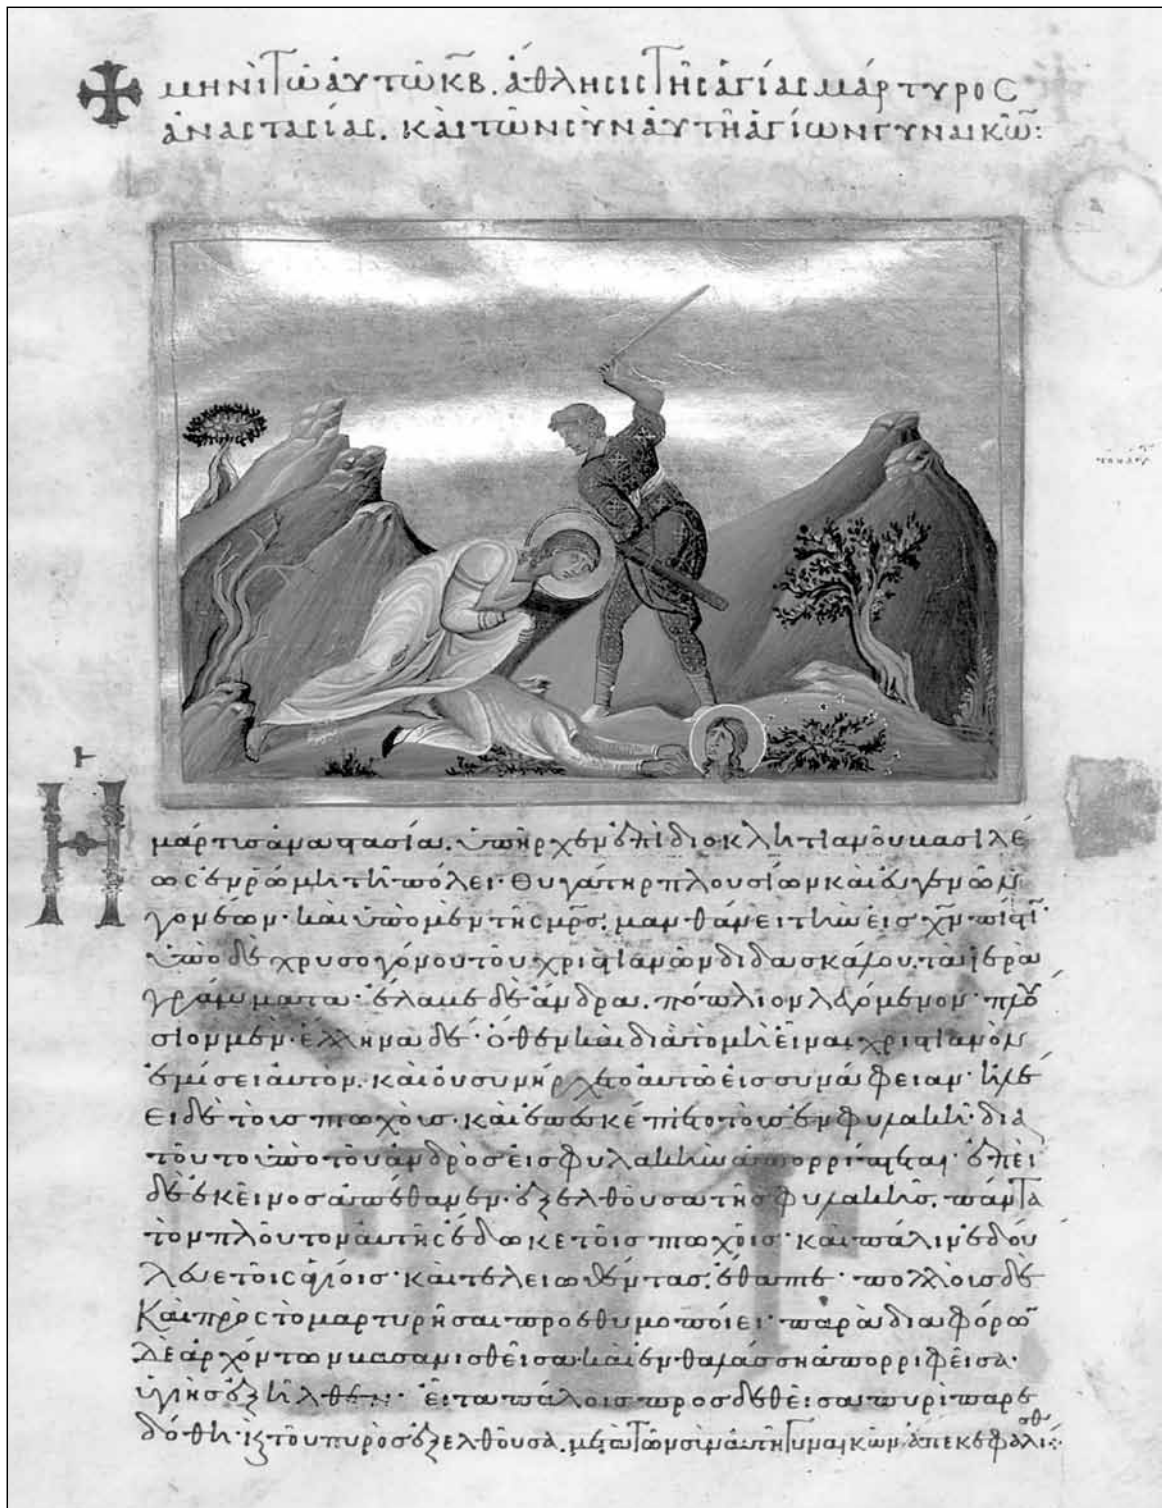 μηνὶ τῷ αὐτῷ κβ. ἄθλησις τῆς ἁγίας μάρτυρος
ἀναστασίας. καὶ τῶν σὺν αὐτῇ ἁγίων γυναικῶ:
Ἡ μάρτις ἀναστασία. ὑπῆρχεν ἐπὶ διοκλητιανοῦ βασιλέ
ως ἐν ῥώμη τῆ πόλει· θυγάτηρ πλουσίων καὶ εὐγενῶν
γονέων· καὶ ὑπὸ μὲν τῆς μρσ. μανθάνει τὴν εἰς χν πίστι·
ὑπὸ δὲ χρυσογόνου τοῦ χριστιανῶν διδασκάλου. τὰ ἱερὰ
γράμματα· ἔλαβε δὲ ἄνδρα. πόπλιον λεγόμενον·
σιον μὲν· ἕλληνα δέ· ὅθεν καὶ διὰ τὸ μὴ εἶναι χριστιανὸν
ἐμίσει αὐτόν. καὶ οὐ συνήρχετο αὐτῶ εἰς συνάφειαν· ἠλέ
ει δὲ τοῖς πτωχοῖς· καὶ ἐπεσκέπτετο τοῖς ἐν φυλακῆ· διὰ
τοῦτο ὑπὸ τοῦ ἀνδρὸς εἰς φυλακὴν ἀπορρίπτεται· ἐπεὶ
δὲ ἐκεῖνος ἀπέθανεν· ἐξελθοῦσα τῆς φυλακῆς. πάντα
τὸν πλοῦτον αὐτῆς ἔδωκε τοῖς πτωχοῖς· καὶ πάλιν ἐδού
λευε τοῖς ἁγίοις· καὶ τελειωθέντας. ἔθαπτε· πολλοὺς δὲ
καὶ πρὸς τὸ μαρτυρῆσαι προσθυμοποίει· παρὰ διαφόρω
δὲ ἀρχόντων βασανισθεῖσα καὶ ἐν θαλάσση ἀπορριφεῖσα·
ὑγιὴς ἐξῆλθεν· εἶτα πάλοις προσδεθεῖσα πυρὶ παρε
δόθη· κ τοῦ πυρὸς ἐξελθοῦσα. μετὰ τῶν σὺν αὐτῆ γυναικῶν ἀπεκεφαλίσθη: